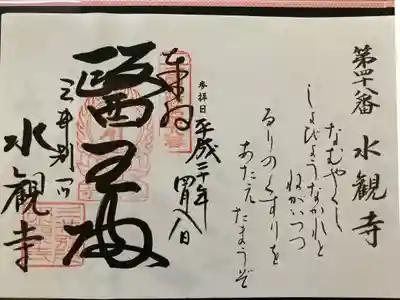 第四十八番 水観寺
なむやくし
しよびようなかれと
ねがいつつ
るりのくすりを
あたえたまうぞ
参拝日
平成二十年
奉拝
醫王殿
三井別所
水観寺